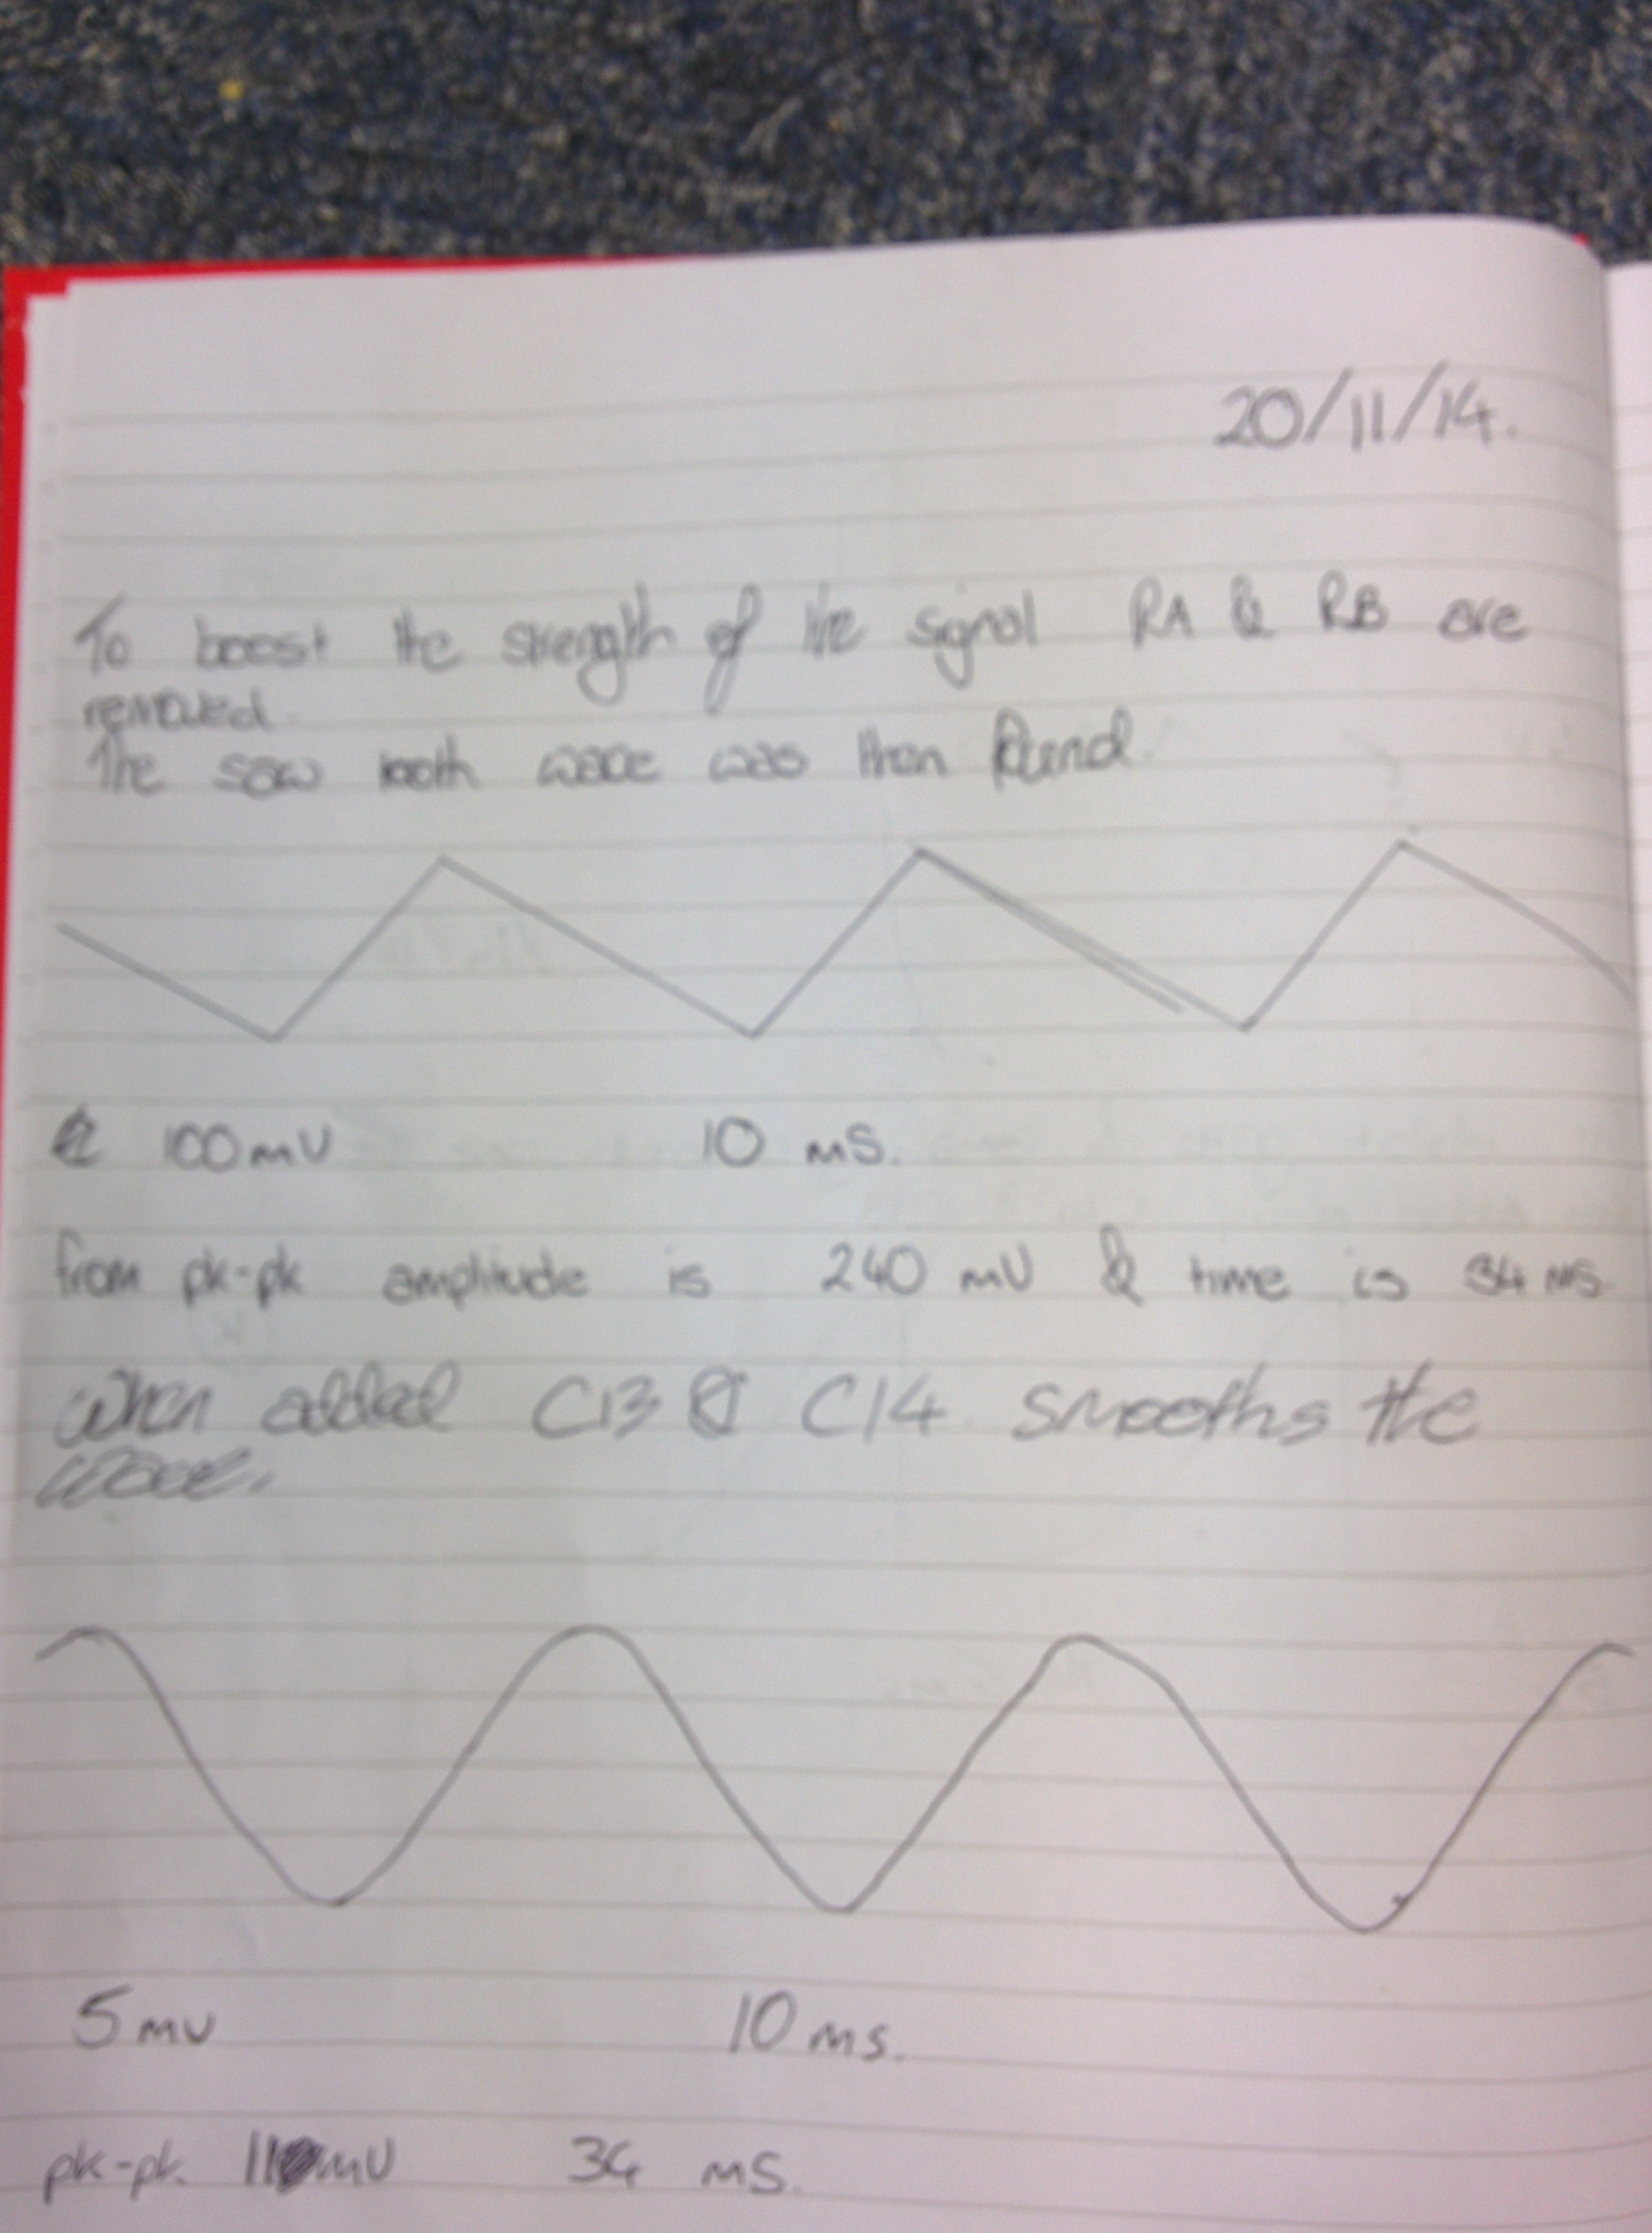 20/11/14.
To boost the strength of the signal RA & RB are
removed.
The saw tooth wave was then found.
100mV 10 ms.
from pk-pk amplitude is 240 mV & time is 34 ms.
When added C13 & C14 smooths the
wave.
5mV 10ms.
pk-pk. 11 mV 34 ms.